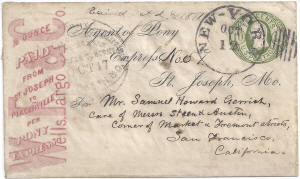 ½ OUNCE
PAID
FROM
ST JOSEPH
TO
PLACERVILLE
PER
PONY
EXPRESS
Wells, Fargo & Co.
Agent of Pony
Express Co.
St. Joseph, Mo.
NEW-YORK
For Mr. Samuel Howard Gerrish,
Care of Messrs
Corner of Market & Fremont streets,
San Francisco
California.